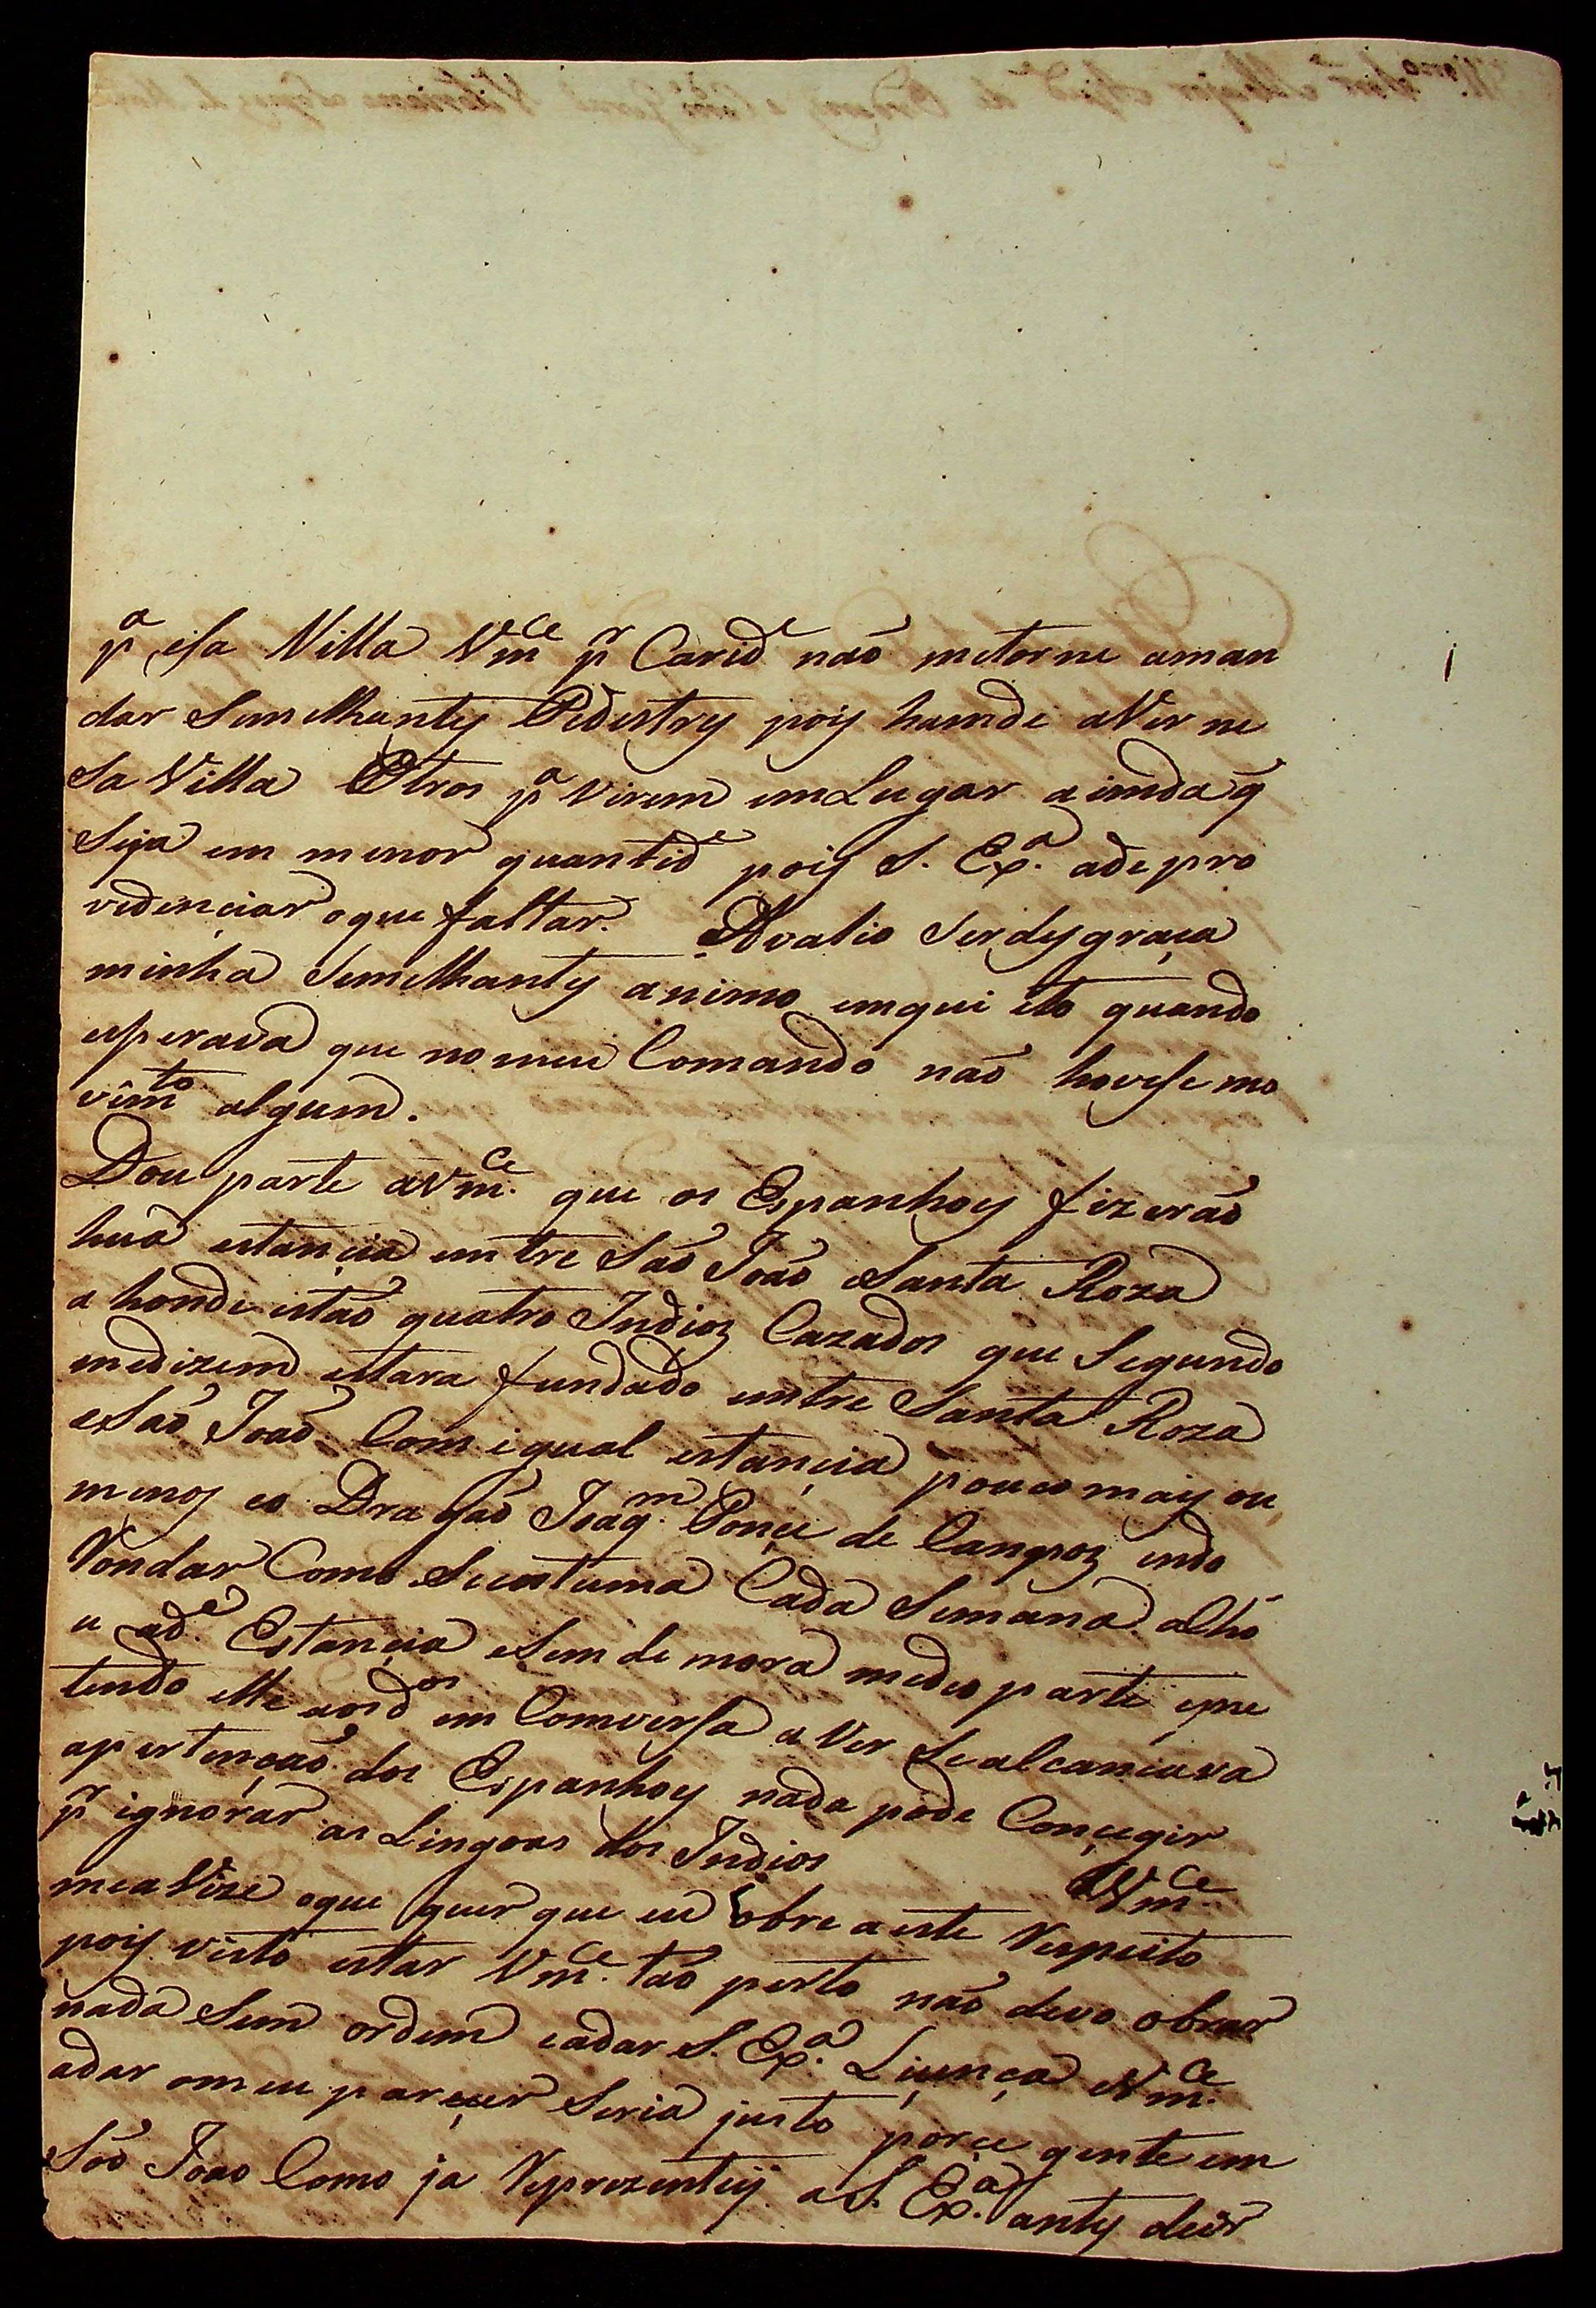 pᵃ esa Villa Vmᶜᵉ pʳ Caridᵉ naõ metorne aman
dar Semelhantes Pedestres pois hamde aVer ne
sa Villa Otros pᵃ virem emLugar aindaq̃
Seja em menor quantidᵉ pois S. Exᵃ. adepro
videnciar oque faltar. Avalio Serdesgraça
minha Semelhantes animo emqui eto quando
esperava que nomeu Comando naõ hovese mo
vimᵗᵒ algum.
Dou parte aVmᶜᵉ. que os Espanhoes fizeraõ
huã estançia entre Saõ Joaõ eSanta Roza
ahonde estaõ quatro Indios Cazados que Segundo
medizem estara fundado entre Santa Roza
eSaõ Joaõ Com igual estançia pouco mais ou
menos eo Dragaõ Joaqᵐ. Ponçe de Campos indo
Rondar Como Secustuma Cada Semana olhó
u adᵃ. Estançia eSem demora medeo parte que
tendo elle aosdᵒˢ em Comversa aVer Sealcançava
apertençaõ dos Espanhoes nada pode Conçegir
pʳ ignorar as Lingoas dos Indios Vmᶜᵉ.
meaVize oque quer que eu obre aeste Respeito
pois visto estar Vmᶜᵉ. taõ perto naõ devo obrar
nada Sem ordem eadar S. Exᵃ. Liçença eVmᶜᵉ.
adar omeu pareçer Seria justo porçe gente em
Saõ Joaõ Como ja Reprezentey aS. Exᵃ. antes deir